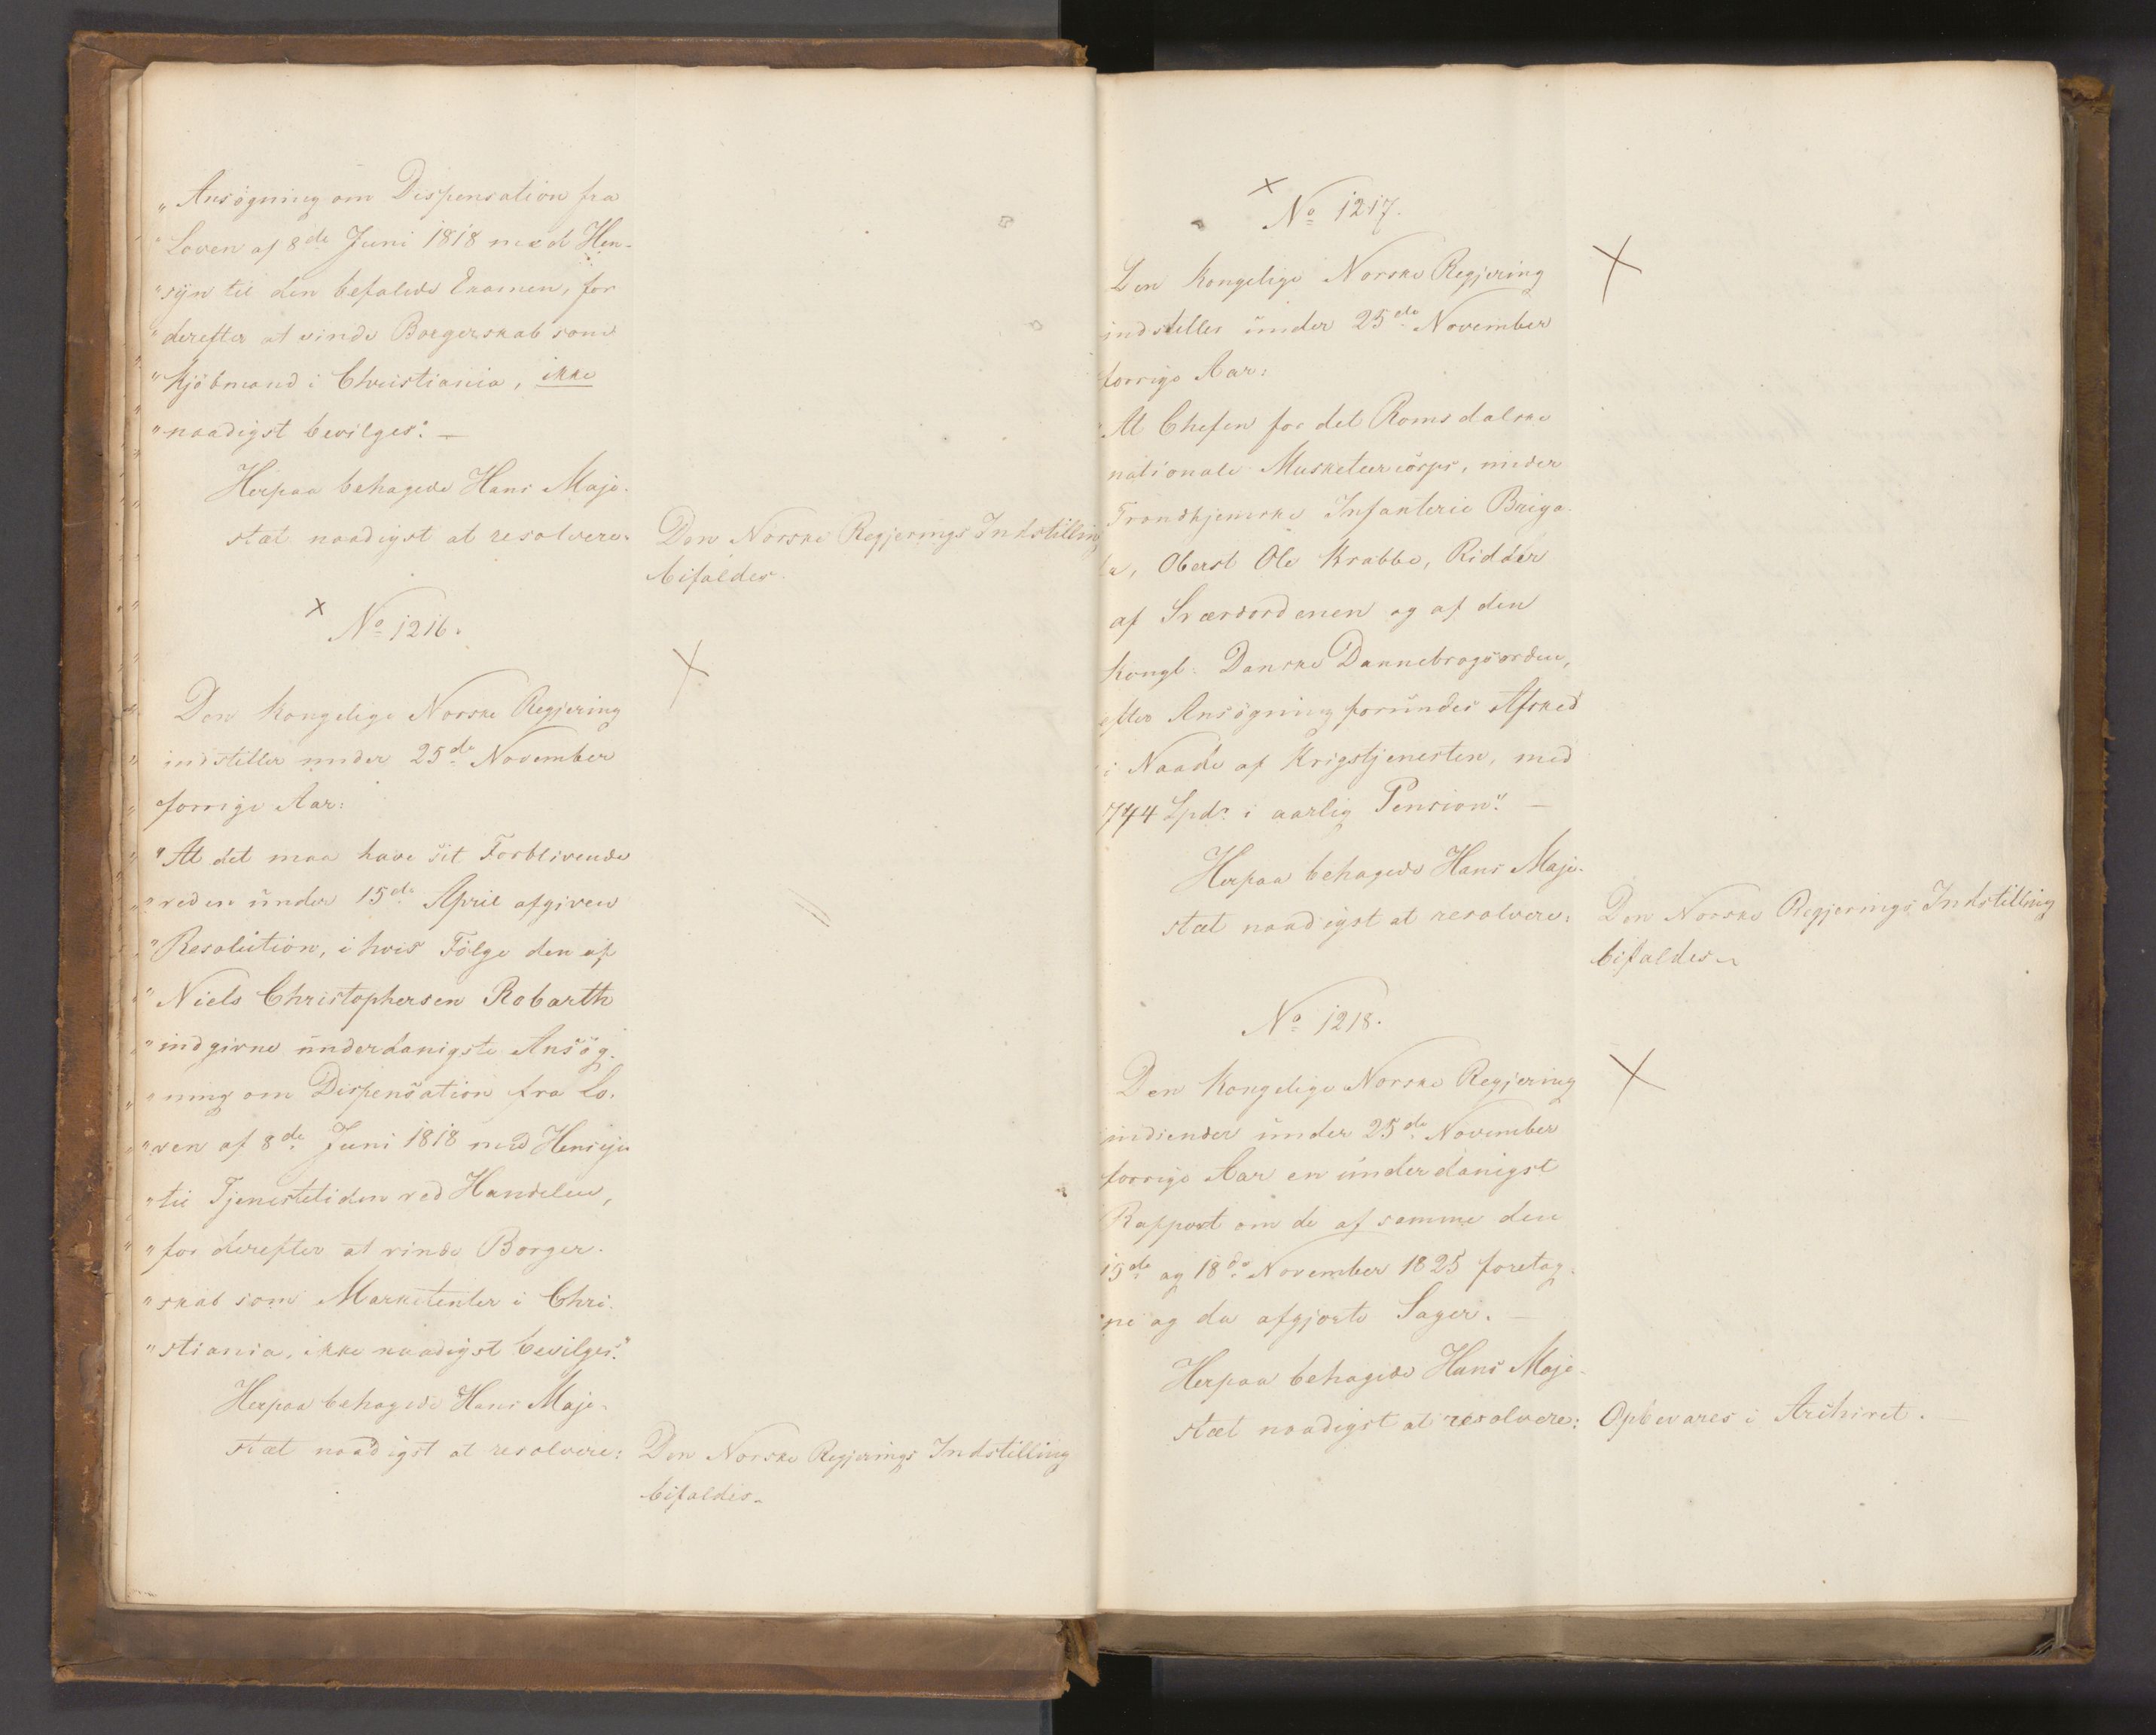 „Ansögning om Dispensation fra
"Loven af 8de Juni 1818 med Hen-
"syn til den befalede Examen, for
"derefter at vinde Borgerskab som
"Kjöbmand i Christiania, ikke
"naadigst bevilges". —
Herpaa behagede Hans Maje-
stæt naadigst at resolvere:
Den Norske Regjerings Indstilling
bifaldes.
x
No 1216.
Den Kongelige Norske Regjering
indstiller under 25de November
forrige Aar:
"At det maa have sit Forblivende
"ved en under 15de April afgiven
"Resolution, i hvis Fölge den af
"Niels Christophersen Robarth
"indgivne underdanigste Ansög-
"ning om Dispensation fra Lo-
"ven af 8de Juni 1818 med Hensyn
"til Tjenestetiden ved Handelen,
"for derefter at vinde Borger-
"skab som Marketenter i Chri-
"stiania, ikke naadigst bevilges."
Herpaa behagede Hans Maje-
stæt naadigst at resolvere:
Den Norske Regjerings Indstilling
bifaldes.
x
No 1217.
Den Kongelige Norske Regjering
indstiller under 25de November
forrige Aar:
"At Chefen for det Romsdalske
nationale Musketeercorps, under
Trondhjemske Infanterie Briga-
de, Oberst Ole Krabbe, Ridder
af Sværdordenen og af den
Kongl. Danske Dannebrogsorden,
efter Ansögning forundes Afsked
i Naade af Krigstjenesten, med
744 Spdr i aarlig Pension". —
Herpaa behagede Hans Maje-
stæt naadigst at resolvere:
Den Norske Regjerings Indstilling
bifaldes.
No 1218.
Den Kongelige Norske Regjering
indsender under 25de November
forrige Aar en underdanigst
Rapport om de af samme den
15de og 18de November 1825 foretag-
ne og da afgjorte Sager. —
Herpaa behagede Hans Maje-
stæt naadigst at resolvere:
Opbevares i Archivet.